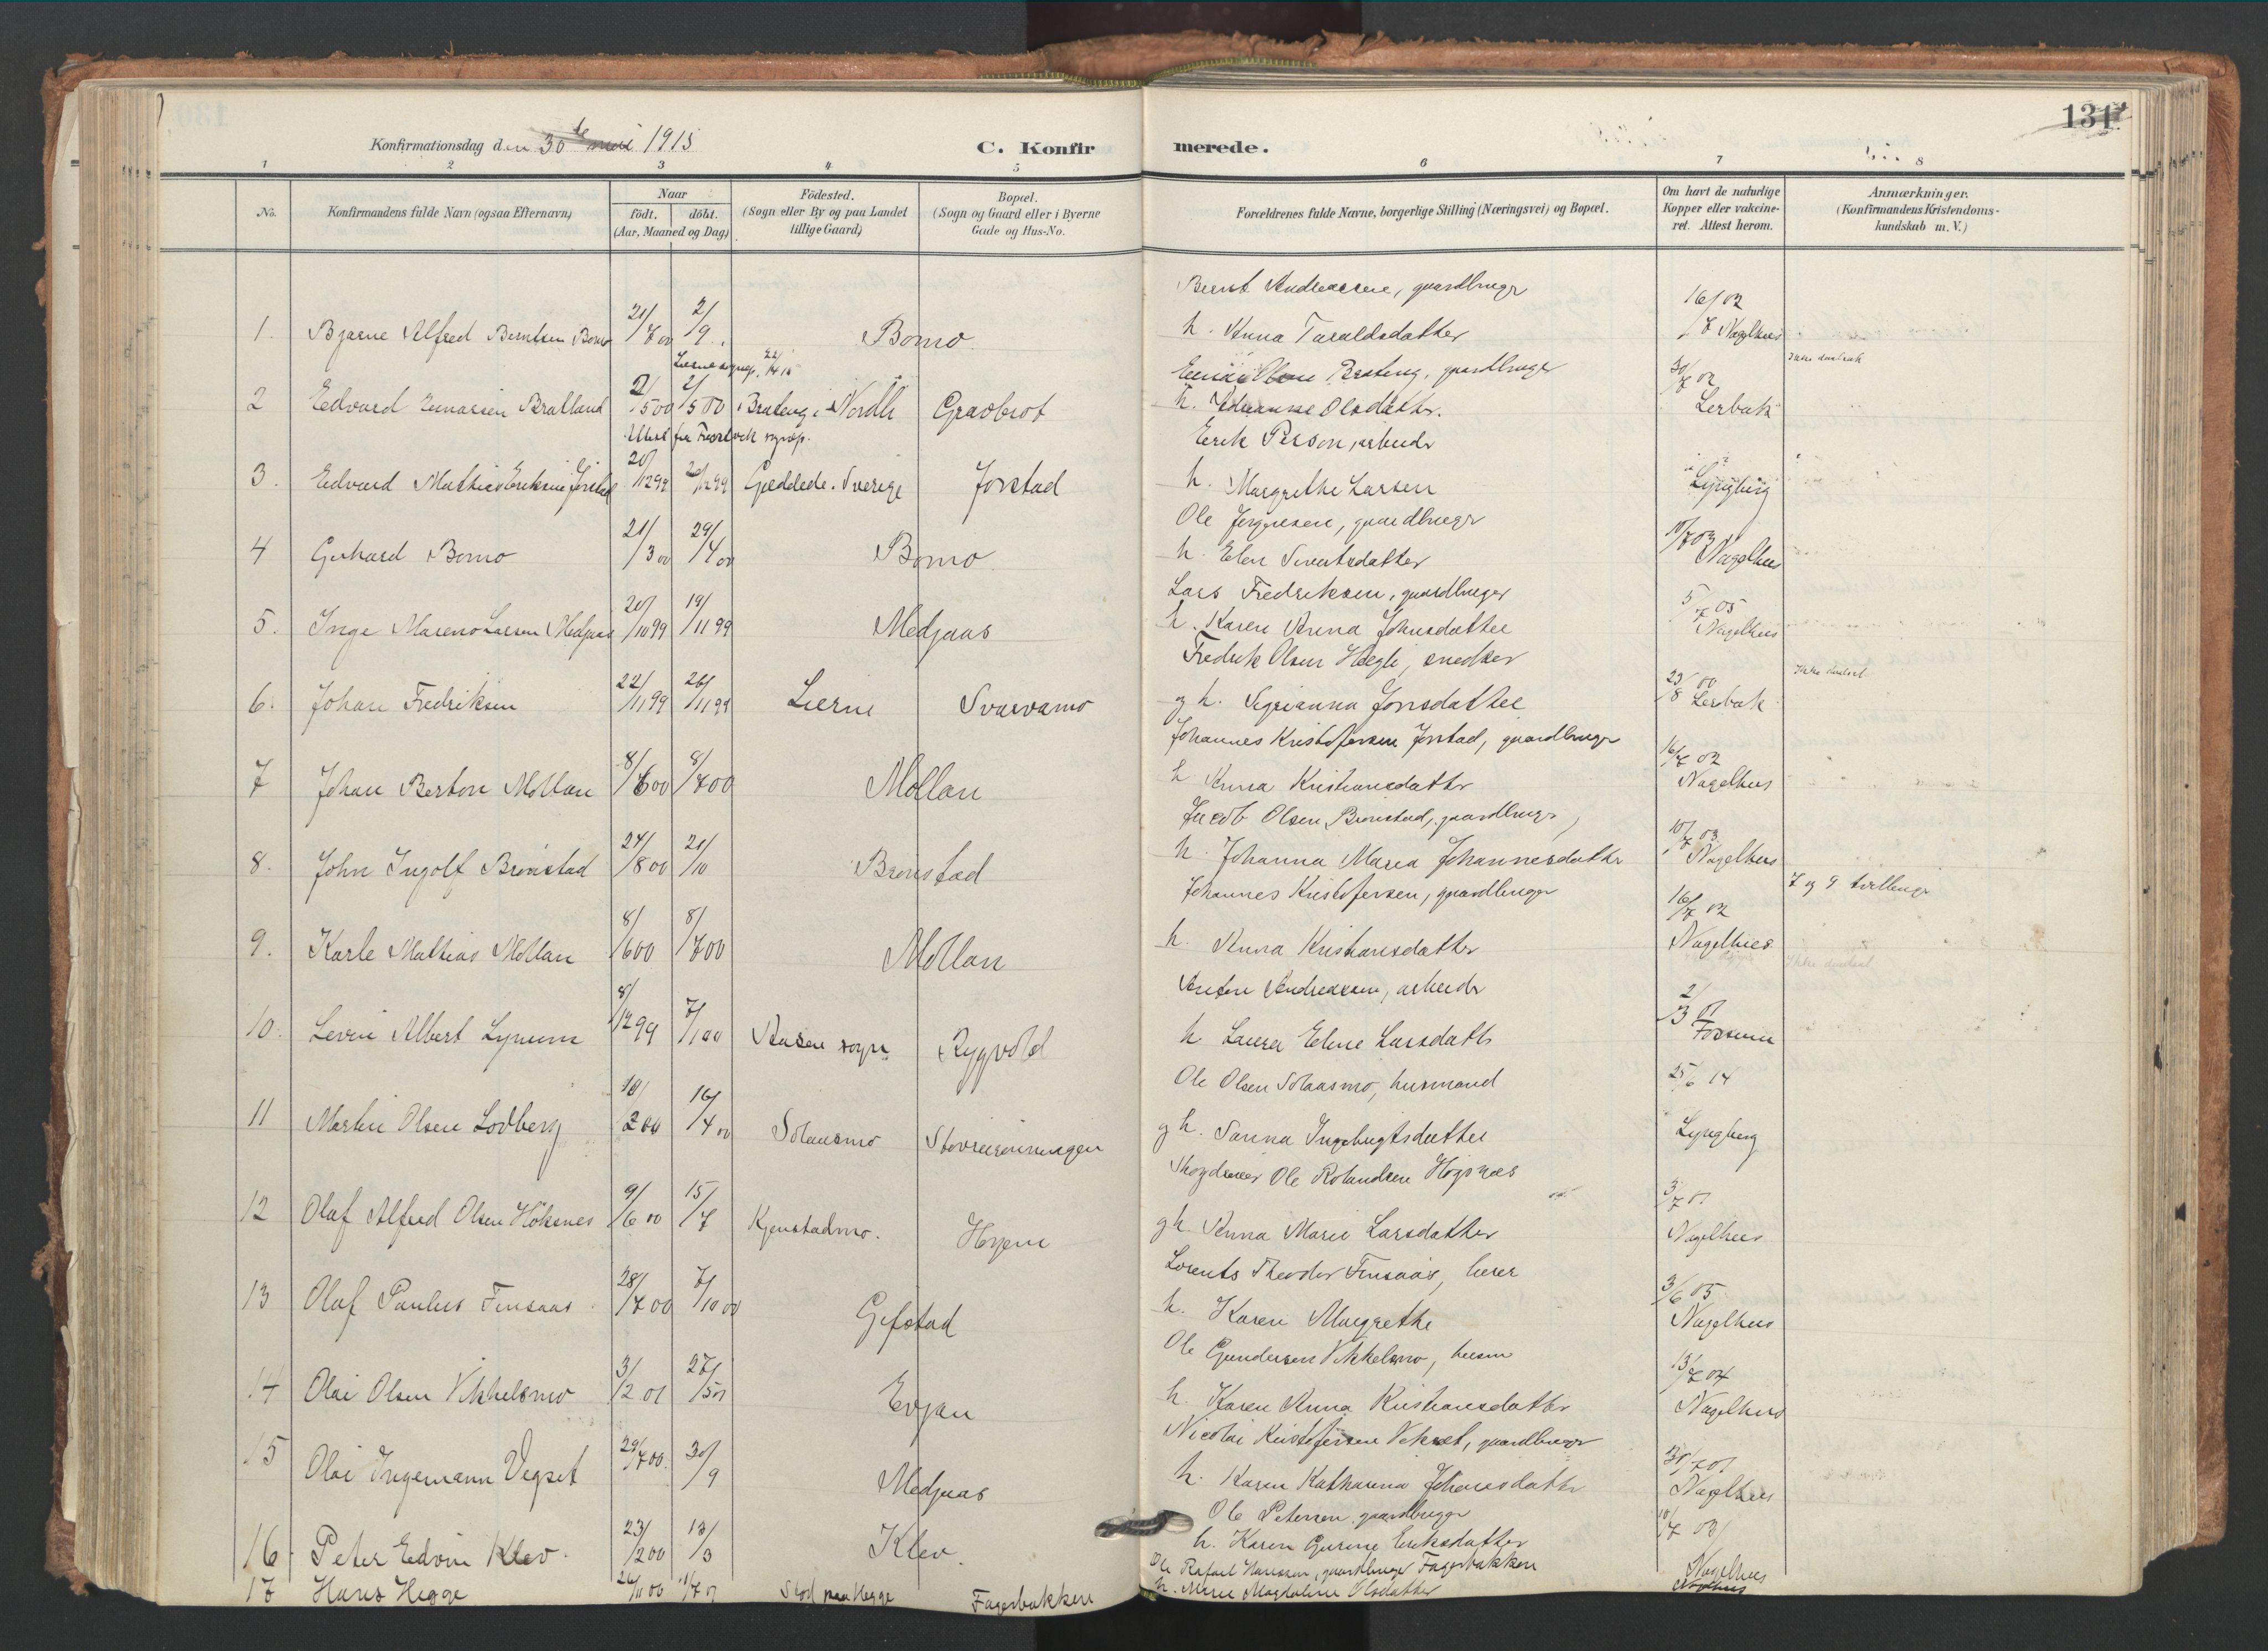 Konfirmationsdag den 30te mai 1915
C. Konfirmerede.
131
1 2 3 4 5 6 7 8
No.
Konfirmandens fulde Navn (ogsaa Efternavn)
Naar
födt. döbt.
(Aar, Maaned og Dag)
Födested.
(Sogn eller By og paa Landet
tillige Gaard)
Bopæl.
(Sogn og Gaard eller i Byerne
Gade og Hus-No.
Forældrenes fulde Navne, borgerlige Stilling (Næringsvei) og Bopæl.
Om havt de naturlige
Kopper eller vakcine-
ret. Attest herom.
Anmærkninger.
(Konfirmandens Kristendoms-
kundskab m. V.)
Bernt Andreassen, gaardbruger
1. Bjarne Alfred Berntsen Bomo 21/7 00 2/9 Bomo h. Anna Taraldsdatter 16/7 02 Nagelhus
Brateng, gaardbruger
2 Edvard Bratland 2/5 00 2/5 00 Brateng i Nordli Gravbrot h. Olsdatter. 30/7 02 Lerbak
Erik Person, arbeider
3. Edvard Mathias Eriksen Jørstad 20/12 99 20/12 99 Gæddede. Sverige Jørstad h. Margrethe Larsen Lyngberg
Ole Jørgensen, gaardbruger
4 Gerhard Bomo 21/3 00 29/4 00 Bomo h. Elen Sivertsdatter 10/7 03 Nagelhus
Lars Fredriksen, gaardbruger
5. Inge Mareno Larsen Medjaas 20/10 99 19/11 99 Medjaas h. Karen Anna Johnsdatter 5/7 05 Nagelhus
Fredrik Olsen Hegli, snedker
6. Johan Fredriksen 22/11 99 26/11 99 Lierne Svarvamo og h. Sigrianna Jonsdatter 23/8 00 Lerbak
Johannes Kristofersen Jørstad, gaardbruger
7 Johan Berton Møllan 8/6 00 8/7 00 Møllan h. Anna Kristiansdatter 16/7 02 Nagelhus
Jacob Olsen Brønstad, gaardbruger
8. John Ingolf Brønstad 24/8 00 21/10 Brønstad h. Johanna Maria Johannesdatter 10/7 03 Nagelhus
Johannes Kristofersen, gaardbruger 7 og 9 tvillinger
9. Karle Mathias Møllan 8/6 00 8/7 00 Møllan h. Anna Kristiansdatter 16/7 02 Nagelhus
Anton Andreassen, arbeider
10. Levin Albert Lynum 8/12 99 7/1 00 Aasen sogn Rygvold h. Laura Eline Larsdatter 2/3 01 Fossum
Ole Olsen Solaasmo, husmand
11 Martin Olsen Lodberg 10/2 00 16/4 00 Solaasmo og h. Sanna Ingebrigtsdatter 25/6 14 Lyngberg
Ole Rolandsen Høgsnæs
12 Olaf Alfred Olsen Høksnes 9/6 00 15/7 Kjenstadmo. Hojem og h. Anna Marie Larsdatter 3/7 01 Nagelhus
Lorents Theodor Finsaas, lærer
13 Olaf Paulus Finsaas 28/7 00 7/10 00 Gifstad h. Karen Margrethe 3/6 05 Nagelhus
Ole Gundersen Vikkelsmo, husm
14 Olai Olsen Vikkelsmo 3/2 01 27/5 01 Evjan h. Karen Anna Kristiansdatter 13/7 04 Nagelhus
Nicolai Kristofersen Vekset, gaardbruger
15 Olai Ingemann Vegset 29/7 00 30/9 Medjaas h. Karen Katharina Johansdatter 30/7 01 Nagelhus
Ole Petersen gaardbruger
16 Peter Edvin Klev. 23/2 00 13/3 Klev. h. Karen Gurine Eriksdatter 10/7 03 Nagelhus
Ole Rafael Hansson, gaardbruger Fagerbakken
17 Hans Hegge 26/11 00 1/7 01 Stod paa Hegge Fagerbakken h. Marie Magdaline Olsdatter Nagelhus